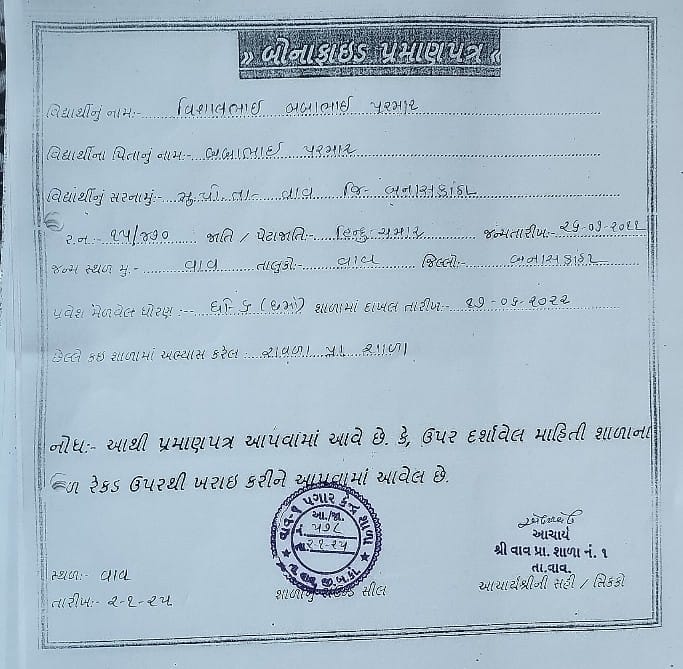 » બોનાફાઇડ પ્રમાણપત્ર «
વિદ્યાર્થીનું નામ:- વિશાલભાઈ બબાભાઈ પરમાર
વિદ્યાર્થીના પિતાનું નામ:- બબાભાઈ પરમાર
વિદ્યાર્થીનું સરનામું:- મુ.પો.તા- વાવ જિ- બનાસકાંઠા
ર.ન:- ૧૫/૪૭૦ જાતિ / પેટાજાતિ:- હિન્દુ ચમાર જન્મતારીખ:-
જન્મ સ્થળ મુ.- વાવ તાલુકો:- વાવ જિલ્લો:- બનાસકાંઠા
પ્રવેશ મેળવેલ ધોરણ :-- શાળામાં દાખલ તારીખ:- ૨૭-૦૬-૨૦૨૨
છેલ્લે કઇ શાળામાં અભ્યાસ કરેલ : પ્રા શાળા
નોંધ:- આથી પ્રમાણપત્ર આપવામાં આવે છે. કે, ઉપર દર્શાવેલ માહિતી શાળાના
રેકડ ઉપરથી ખરાઇ કરીને આપવામાં આવેલ છે.
વાવ-૧ પગાર કેન્દ્ર શાળા
આ./જા.
નં. ૫૭૮
તા. ૨-૧-૨૫
તા. વાવ, જી.બ.કાં.
આચાર્ય
શ્રી વાવ પ્રા. શાળા નં. ૧
તા.વાવ.
સ્થળ:- વાવ
તારીખ:- ૨-૧-૨૫
શાળાનું સીલ
આચાર્યશ્રીની સહી / સિક્કો